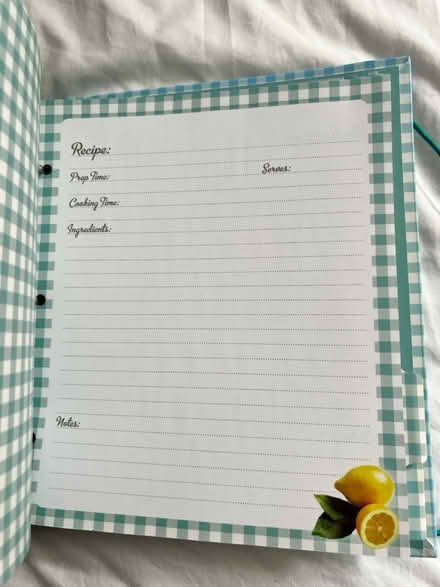 Recipe:
Prep Time: Serves:
Cooking Time:
Ingredients:
Notes: